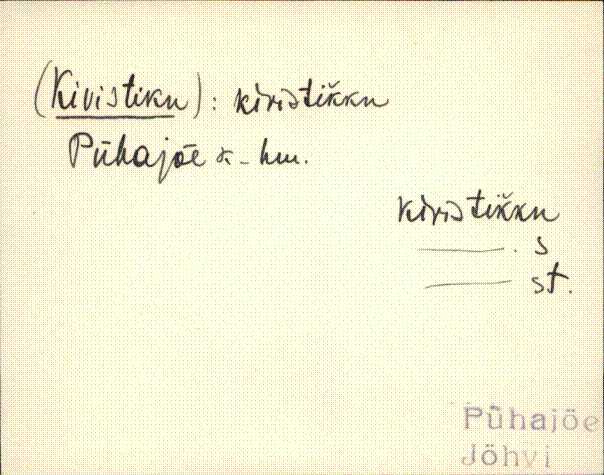 (Kivistiku) : kivistikku
Pühajõe k-hm.
kivistikku
——— . s
——— st.
Pühajõe
Jõhvi